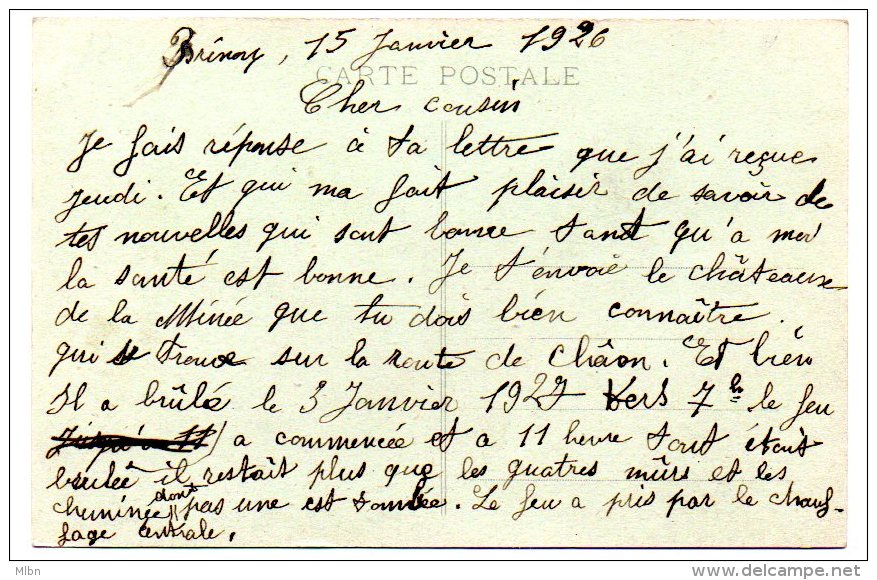 Brinon, 15 Janvier 1926
CARTE POSTALE
Cher cousin
Je fais réponse à ta lettre que j'ai reçue
jeudi. Et qui ma fait plaisir de savoir de
tes nouvelles qui sont bonne tandt qu'a moi
la santé est bonne. Je t'envoie le châteaux
de la Minée que tu dois bien connaître.
qui se trouve sur la route de Châon. Et bien
Il a brûlé le 3 Janvier 1927 Vers 7h le feu
a commencée et a 11 heure tout était
brulée il restait plus que les quatres mûrs et les
cheminée dont pas une est tombée. Le feu a pris par le chauf-
fage centrale.
Mlbn
delcampe.net